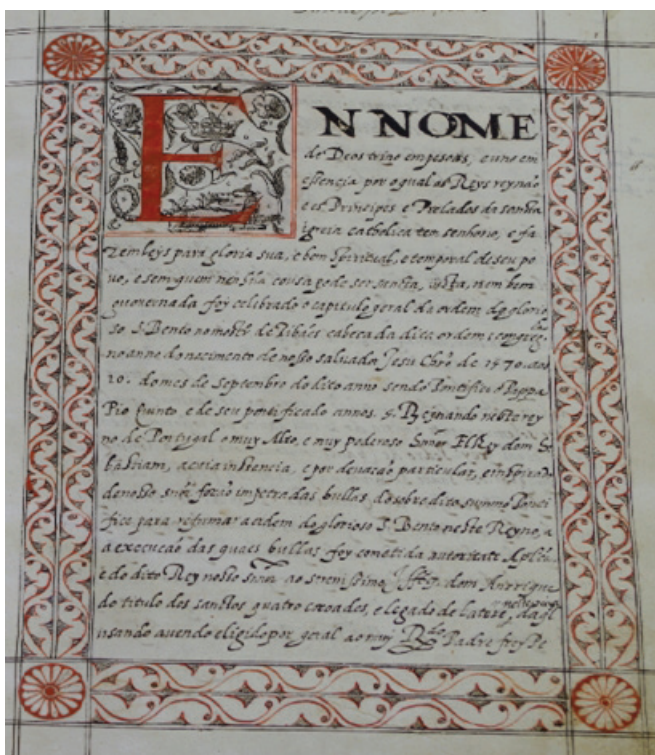 EN NOME
de Deos trino em pesoas, e uno em
essencia por o qual os Reys reynão
e os Principes e Prelados da sancta
igreia catholica tem senhorio, e fa
zem leys para gloria sua, e bem spiritual, e temporal de seu po
uo, e sem quem nenhũa cousa pode ser sancta, iusta, nem bem
guovernada foy celibrado o capitulo geral da ordem do glorio
so S. Bento no mostro de Tibães cabeca da dita ordem e congreg
no anno do nacimento de nosso saluador Jesu Chro de 1570. aos
10. do mes de Septembro do dito anno sendo Pontifice o Pappa
Pio Quinto e de seu pontificado annos. 5. Reynando neste rey
no de Portugal o muy Alto, e muy poderoso Senor El Rey dom Se
bastiam, a cuia instencia, e por deuacão particular, e inspirado
de nosso snor forão impetradas bullas, do sobre dito summo Ponti
fice para refumar a ordem do glorioso S. Bento neste Reyno, a
a execucão das quaes bullas foy cometida autoritate Aplica
e do dito Rey nosso snor ao serenissimo dom Anrrique
do titulo dos sanctos quatro coroados, e legado de latere, da ql
usando auendo eligido por geral ao muj Rdo Padre frey Pe